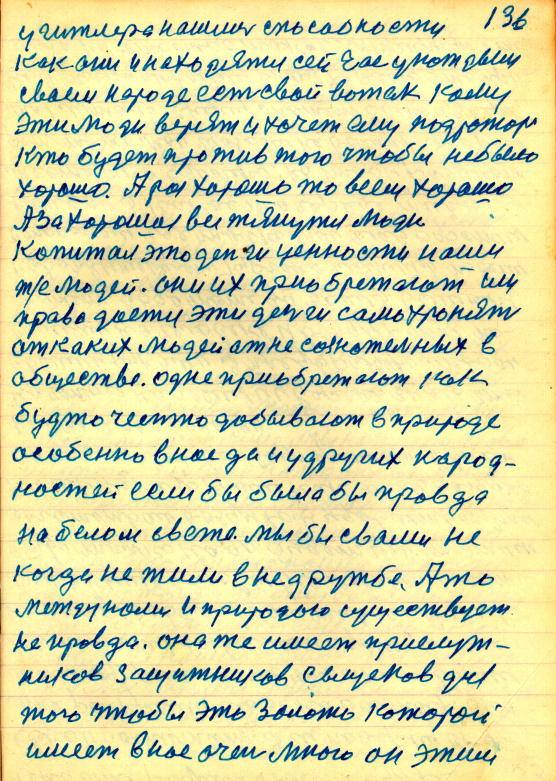 136
у гитлера нашлись способности
Как они и находятся сей час у каждым
своем народе есть свой вотак кому
Эти люди верят и хочет ему подрожать
Кто будет против того чтобы небыло
хорошо. А раз хорошо то всем хорошо
А За хорошая все тянутся люди
Копитал это деньги ценности наши
т/е людей. они их приобретают им
право дается эти деньги само хронять
от каких людей от не сознательных в
обществе. одне приобретают как
будто честно добывают в природе
особенно в нас да и у других народ-
ностей если бы была бы правда
на белом свете. мы бы свами не
когда не жили в не дружбе. А то
между нами и природою существует
не правда. она же имеет прислуж-
ников защитников сыщеков для
того чтобы это золото которой
имеет в нас очен много он этим